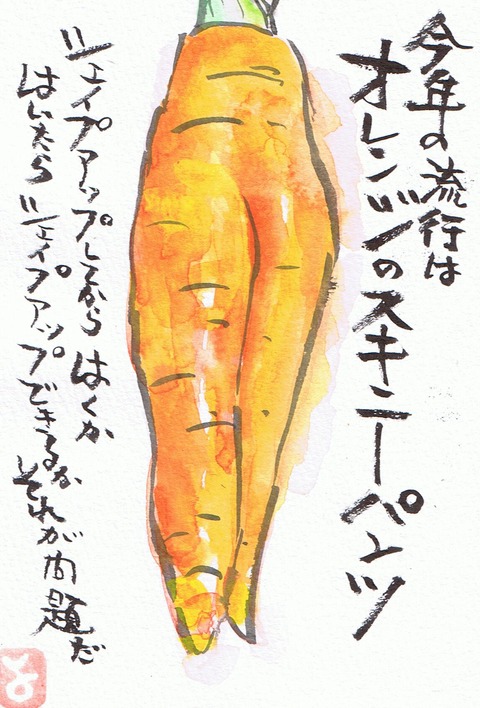 今年の流行は
オレンジのスキニーパンツ
シェイプアップしてからはくか
はいたらシェイプアップできるか
それが問題だ